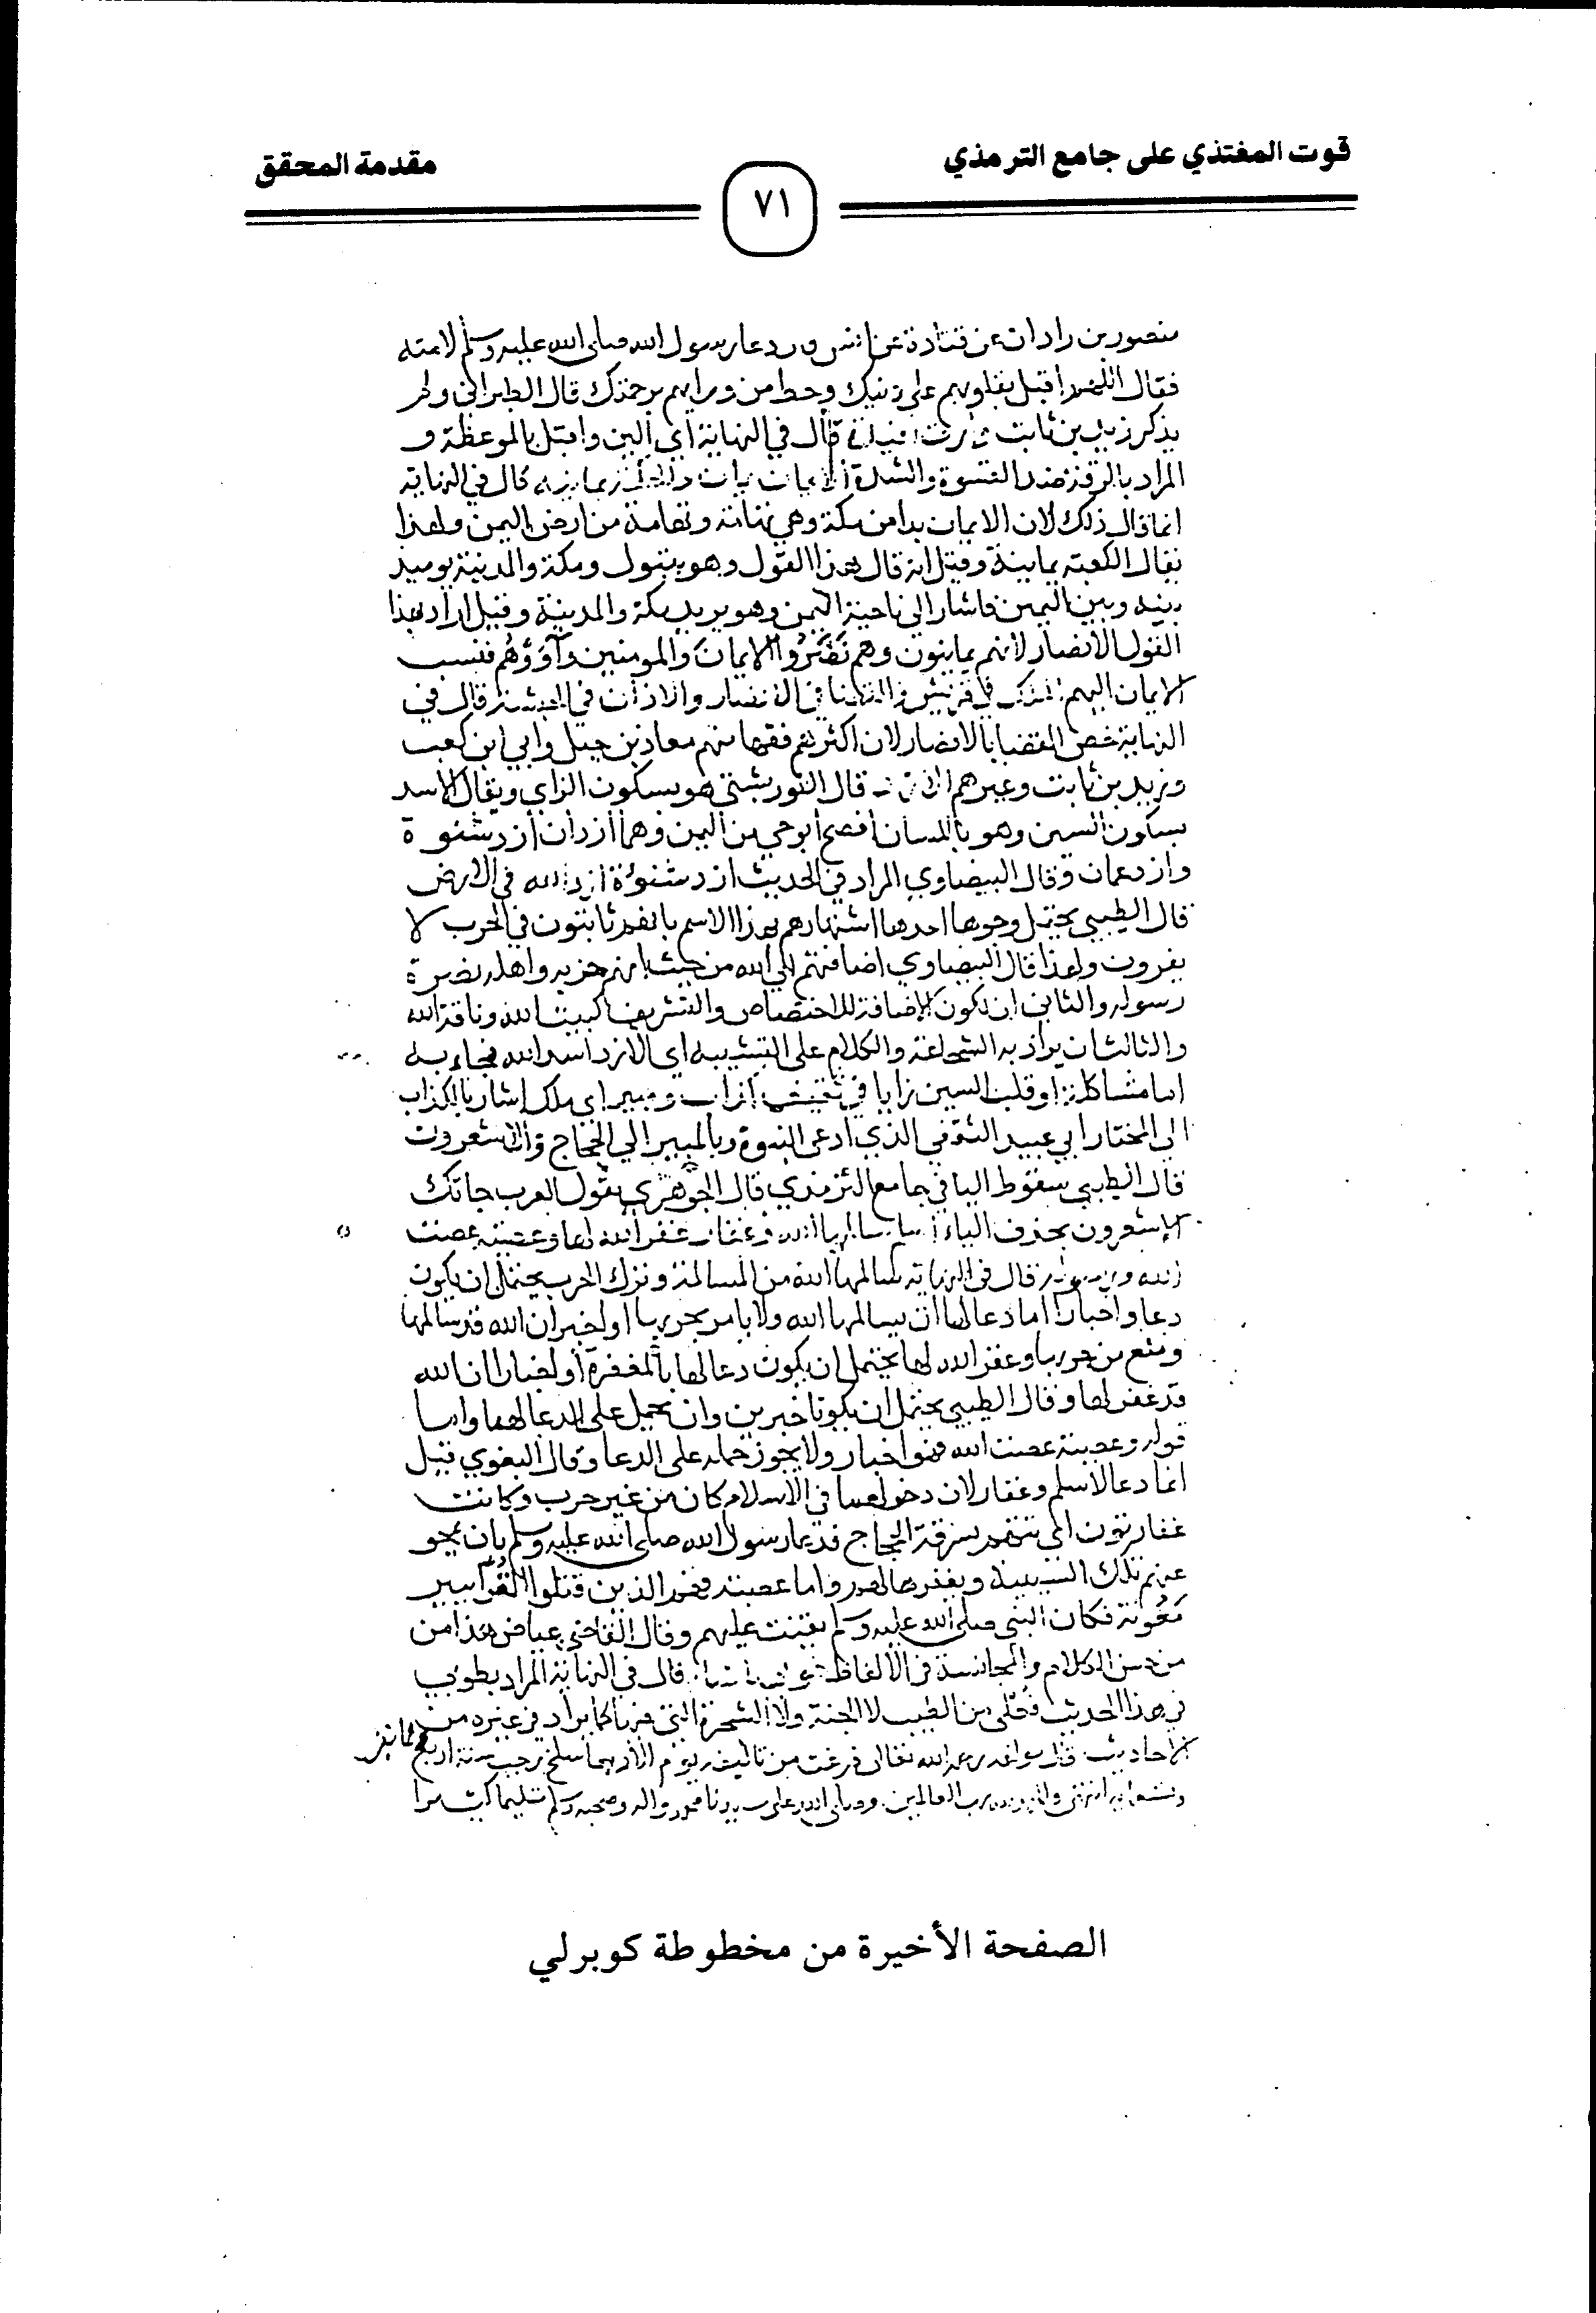 قوت المغتذي على جامع الترمذي
مقدمة المحقق
٧١
منصور بن زادان عن قتادة عن انس ورد عا رسول الله صلى الله عليه وسلم لامته
فقال اللهم اقبل بقلوبهم على دينك وحط من ورايهم برحمتك قال الطبراني ولم
يذكر زيد بن ثابت قال في النهاية اي الين واقبل بالموعظة و
المراد بالرقة ضد القسوة والشدة قال في النهاية
انما قال ذلك لان الايمان بدا من مكة وهي تهامة وتهامة من ارض اليمن ولهذا
يقال الكعبة يمانية وقيل انه قال هذا القول وهو بتبوك ومكة والمدينة يوميذ
بينه وبين اليمن فاشار الى ناحية اليمن وهو يريد مكة والمدينة وقيل اراد بهذا
القول الانصار لانهم يمانيون وهم نَصَرُوا الايمانَ والمومنين وآوَوْهُم فنسب
الايمان اليهم الملك في قريش والقضا في الانصار والاذان في الحبشة قال في
النهاية خص القضا بالانصار لان اكثرهم فقها منهم معاذ بن جبل وابي ابن كعب
وزيد بن ثابت وغيرهم قال التوربشتي هو بسكون الزاي ويقال الاسد
بسكون السين وهو بالسان افصح ابو حي من اليمن وهما ازدان ازد شنوة
وازد عمان وقال البيضاوي المراد في الحديث ازد شنوءة ازد الله في الارض
قال الطيبي يحتمل وجوها احدها اشتهارهم بهذا الاسم بانهم ثابتون في الحرب لا
يفرون ولهذا قال البيضاوي اضافتهم الى الله من حيث انهم حزبه واهل نصرة
رسوله والثاني ان تكون الاضافة للاختصاص والتشريف كبيت الله وناقة الله
والثالث ان يراد به الشجاعة والكلام على التشبيه اي الازد اسد الله فجاء به
اما مشاكلة او قلب السين زايا في ثقيف كذاب ومبير اي ملك اشار بالكذاب
الى المختار ابي عبيد الثقفي الذي ادعى النبوة وبالمبير الي الحجاج والاشعرون
قال الطيبي سقوط اليا في جامع الترمذي قال الجوهري يقول العرب جاتك
الاشعرون بحذف الياء اسلم سالمها الله وغفار غفر الله لها وعصية عصت
الله ورسوله قال في النهاية سالمها الله من المسالمة وترك الحرب يحتمل ان يكون
دعا واخبارا اما دعا لها ان يسالمها الله ولا يامر بحربها او اخبر ان الله قد سالمها
ومنع من حربها وغفر الله لها يحتمل ان يكون دعا لها بالمغفرة او اخبارا ان الله
قد غفر لها وقال الطيبي يحتمل ان يكونا خبرين وان يحمل على الدعا لهما واما
قوله وعصية عصت الله فهو اخبار ولا يجوز حمله على الدعا وقال البغوي قيل
انما دعا لاسلم وغفار لان دخولهما في الاسلام كان من غير حرب وكانت
غفار تزن اي تتهم بسرقة الحجاج فدعا رسول الله صلى الله عليه وسلم بان يمحو
عنهم تلك السيية ويغفرها لهم واما عصية فهم الذين قتلوا القُرّا ببير
مَعُونة فكان النبي صلى الله عليه وسلم يقنت عليهم وقال القاضي عياض هذا من
من حسن الكلام والمجانسة في الالفاظ قال في النهاية المراد بطوبي
في هذا الحديث فُعْلى من الطيب لا الجنة ولا الشجرة التي فيها كما يراد في غيره من
الاحاديث قال مولفه رحمه الله تعالى فرغت من تاليفه يوم الاربعا سلخ رجب سنة اربع
والحمد لله رب العالمين وصلى الله على سيدنا محمد واله وصحبه وسلم تسليما كثيرا
الصفحة الأخيرة من مخطوطة كوبرلي